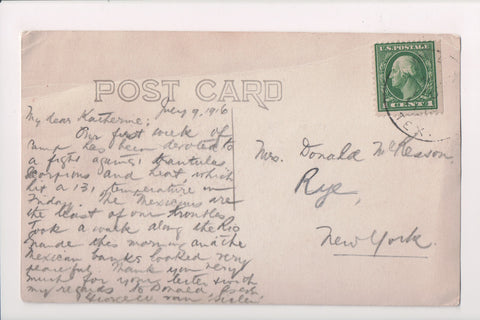 POST CARD
U.S. POSTAGE
1 CENT 1
TEX
July 9, 1916
My dear Katherine;
Our first week of
camp has been devoted to
a fight against tarantulas
scorpions and heat which
hit a 131 temperature on
Friday. The Mexicans are
the least of our troubles
Took a walk along the Rio
Grande this morning and the
Mexican banks looked very
peaceful. Thank you very
much for your letter & with
my regards to Donald,
Mrs. Donald McKesson,
Rye,
New York.